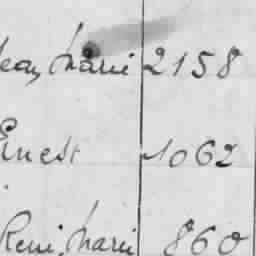 Jean, Marie 2158
Ernest 1062
René, Marie 860